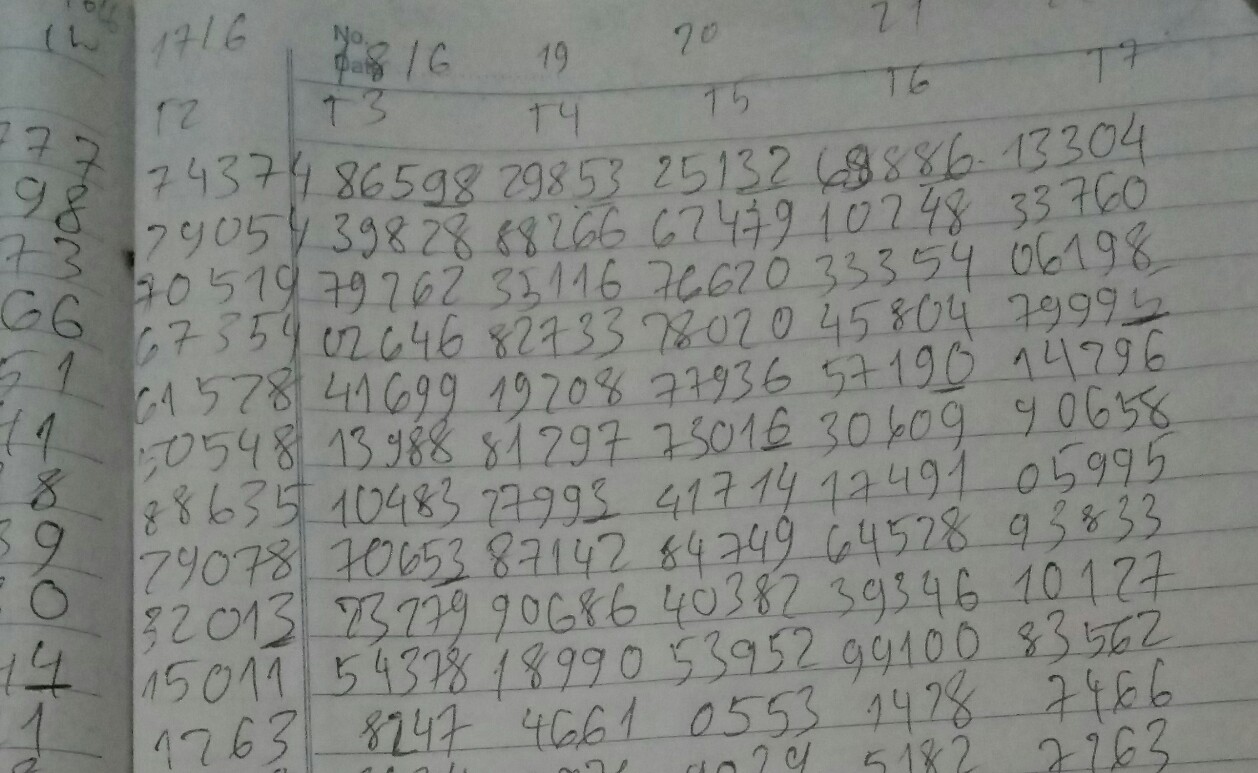 17/6 No. 18/6 19 20 21
T2 T3 T4 T5 T6 T7
777 74374 86598 29853 25132 68886 13304
98 29054 39828 88266 62479 10248 33760
73 70519 79262 35116 76620 33354 06198
66 67354 02646 82733 78020 45804 79995
51 61528 41699 19208 77936 57190 14296
11 50548 13988 81297 73016 30609 90658
8 88635 10483 27993 41714 17491 05995
39 29078 70653 87142 84749 64528 93833
0 32013 23279 90686 40382 39346 10127
14 15011 54378 18990 53952 99100 83562
1 1263 8247 4661 0553 1428 7466
5182 2263